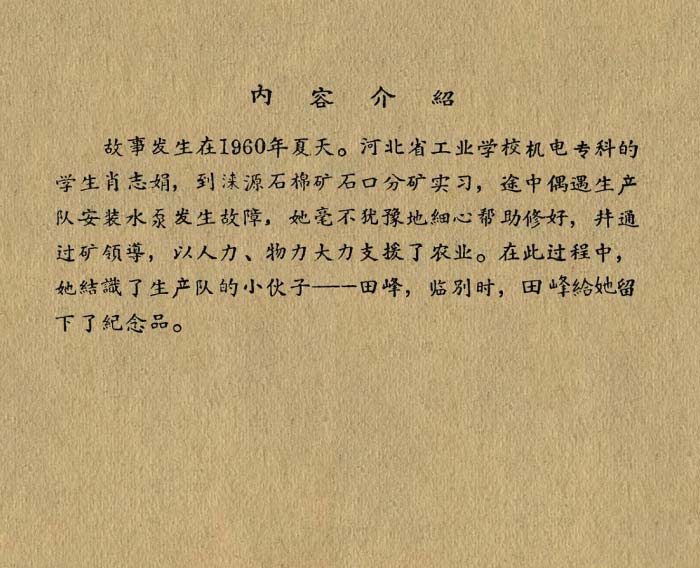 内容介紹
故事发生在1960年夏天。河北省工业学校机电专科的
学生肖志娟，到涞源石棉矿石口分矿实习，途中偶遇生产
队安装水泵发生故障，她毫不犹豫地細心帮助修好，并通
过矿領導，以人力、物力大力支援了农业。在此过程中，
她結識了生产队的小伙子——田峰，临别时，田峰給她留
下了紀念品。